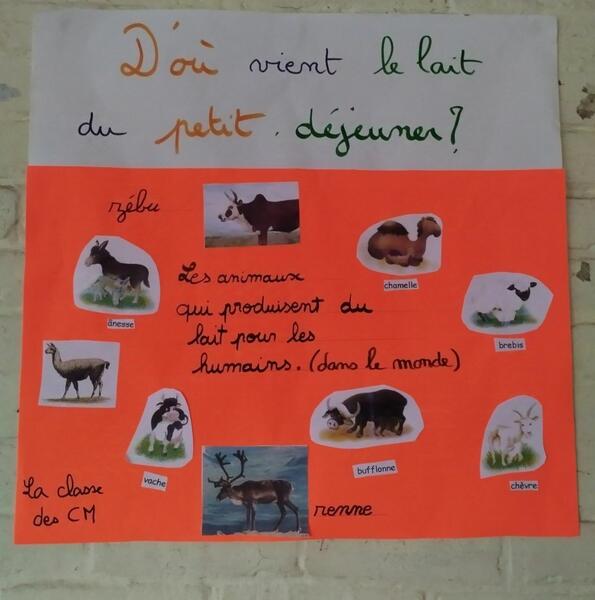 D'où vient le lait
du petit déjeuner?
zébu
chamelle
ânesse
Les animaux
qui produisent du
lait pour les
humains. (dans le monde)
brebis
vache
bufflonne
chèvre
La classe
des CM
renne